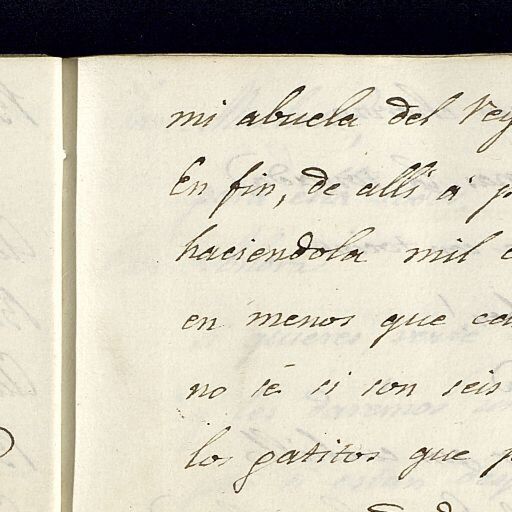 mi abuela del Rey
En fin, de allí á p
haciendola mil c
en menos que ca
no sé si son seis
los gatitos que p